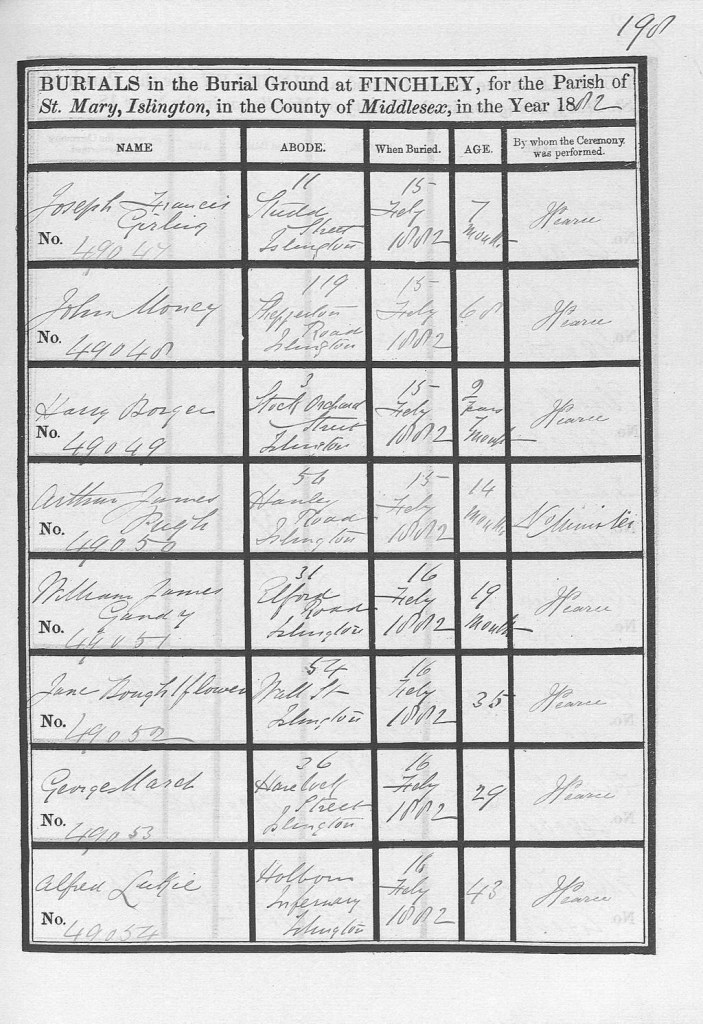 198
BURIALS in the Burial Ground at FINCHLEY, for the Parish of
St. Mary, Islington, in the County of Middlesex, in the Year 1882
NAME ABODE. When Buried. AGE. By whom the Ceremony was performed.
Joseph Francis Girling
No. 49047
11 Studd Street Islington
15 Feby 1882
7 Months
Pearce
John Money
No. 49048
119 Shepperton Road Islington
15 Feby 1882
68
Pearce
Harry Borger
No. 49049
3 Stock Orchard Street Islington
15 Feby 1882
2 Years 7 Months
Pearce
Arthur James Pugh
No. 49050
56 Hanley Road Islington
15 Feby 1882
14 Months
No Minister
William James Gandy
No. 49051
31 Elford Road Islington
16 Feby 1882
19 Months
Pearce
Jane Boughtflower
No. 49052
54 Wall St Islington
16 Feby 1882
35
Pearce
George March
No. 49053
36 Havelock Street Islington
16 Feby 1882
29
Pearce
Alfred Luckie
No. 49054
Holborn Infirmary Islington
16 Feby 1882
43
Pearce